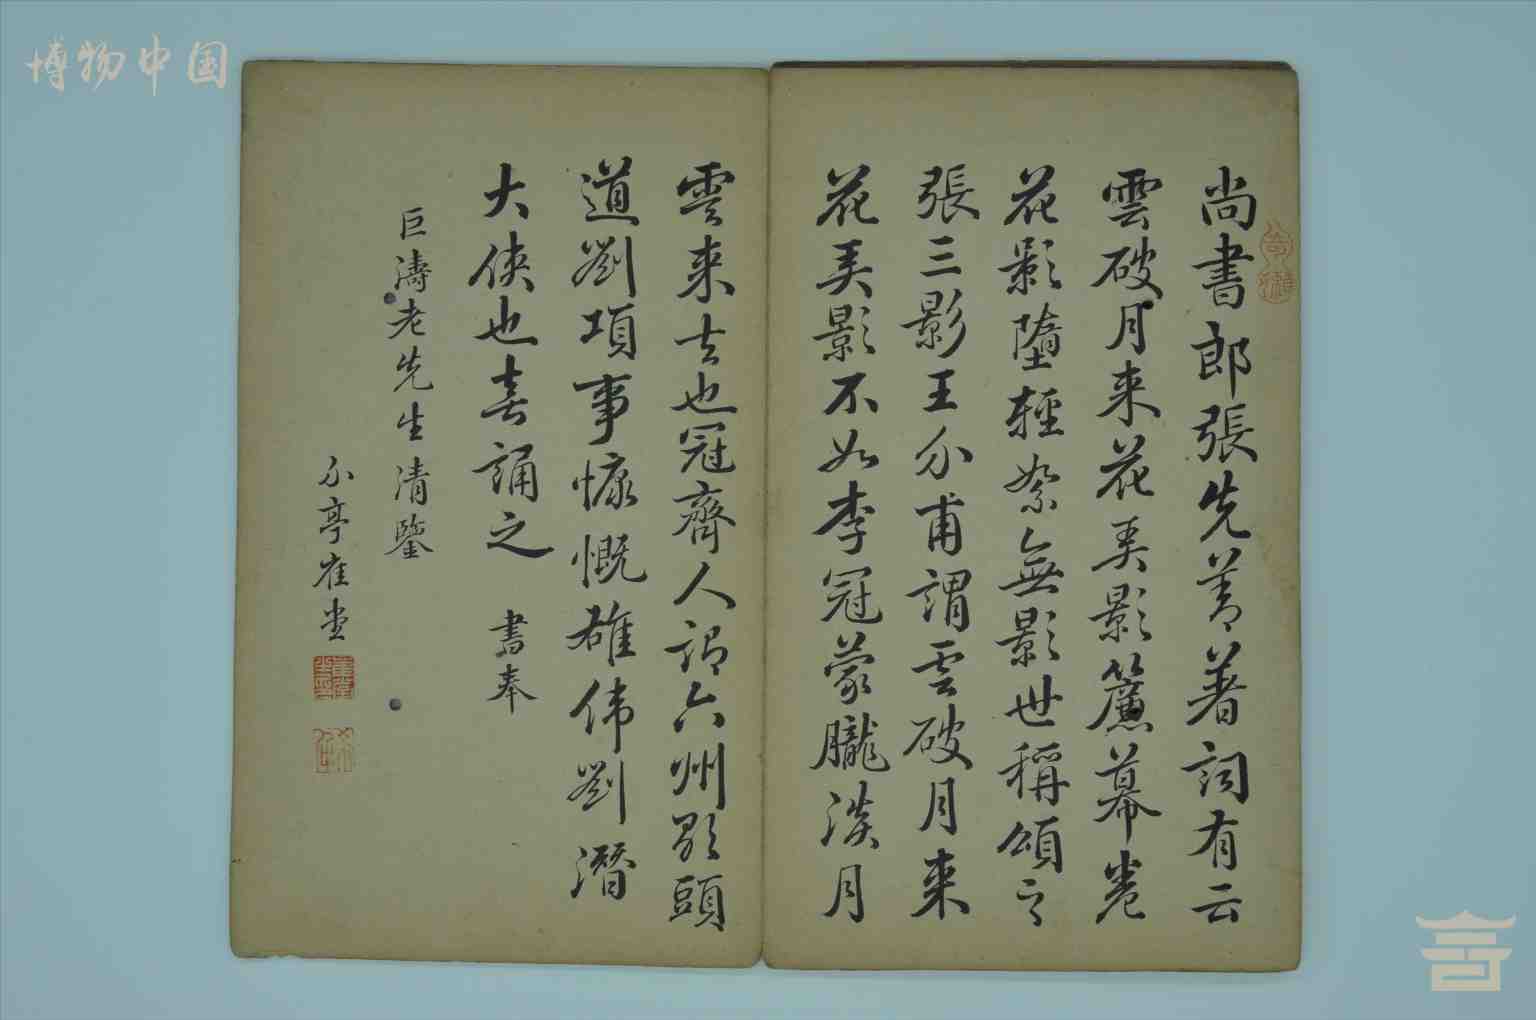 尚書郎張先善著詞有云
雲破月来花弄影簾幕卷
花影墮輕絮無影世稱頌之
張三影王介甫謂雲破月来
花弄影不如李冠蒙朧淡月
雲来去也冠齊人謂六州歌頭
道劉項事慷慨雄偉劉潛
大俠也喜誦之 書奉
巨濤老先生清鑒
小亭崔
博物中国